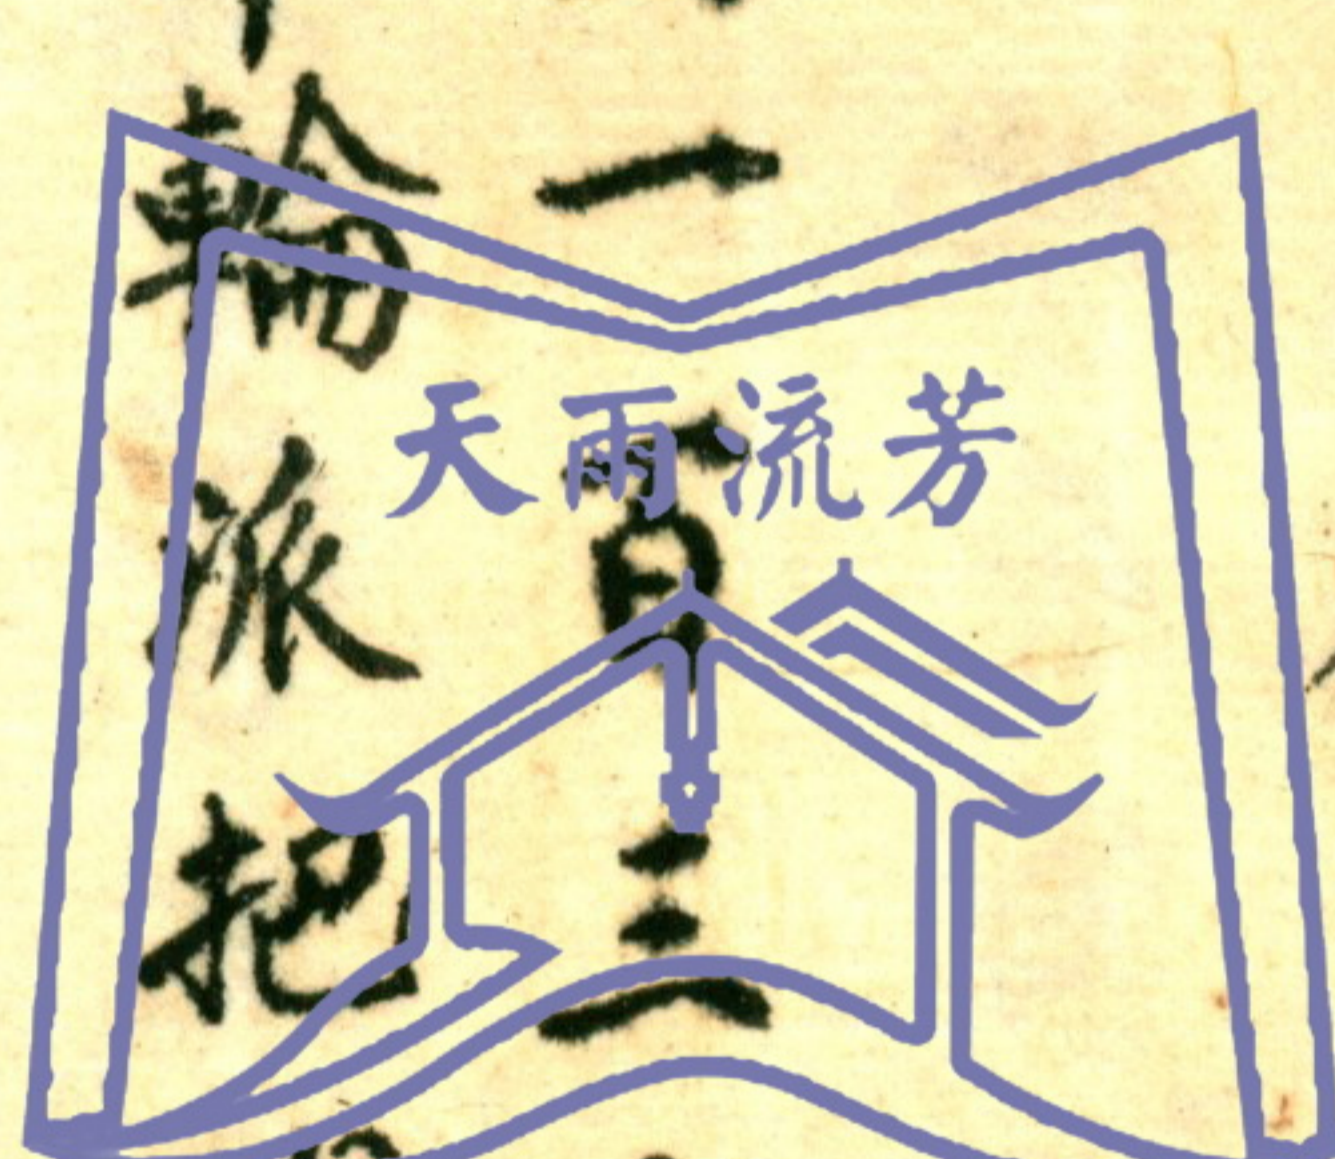 一百三
輪派把
天雨流芳